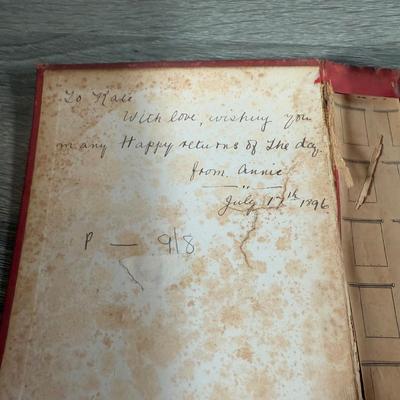 To Kate
With love, wishing you
many Happy returns of The day.
from Annie
July 17th 1896
P — 9/8